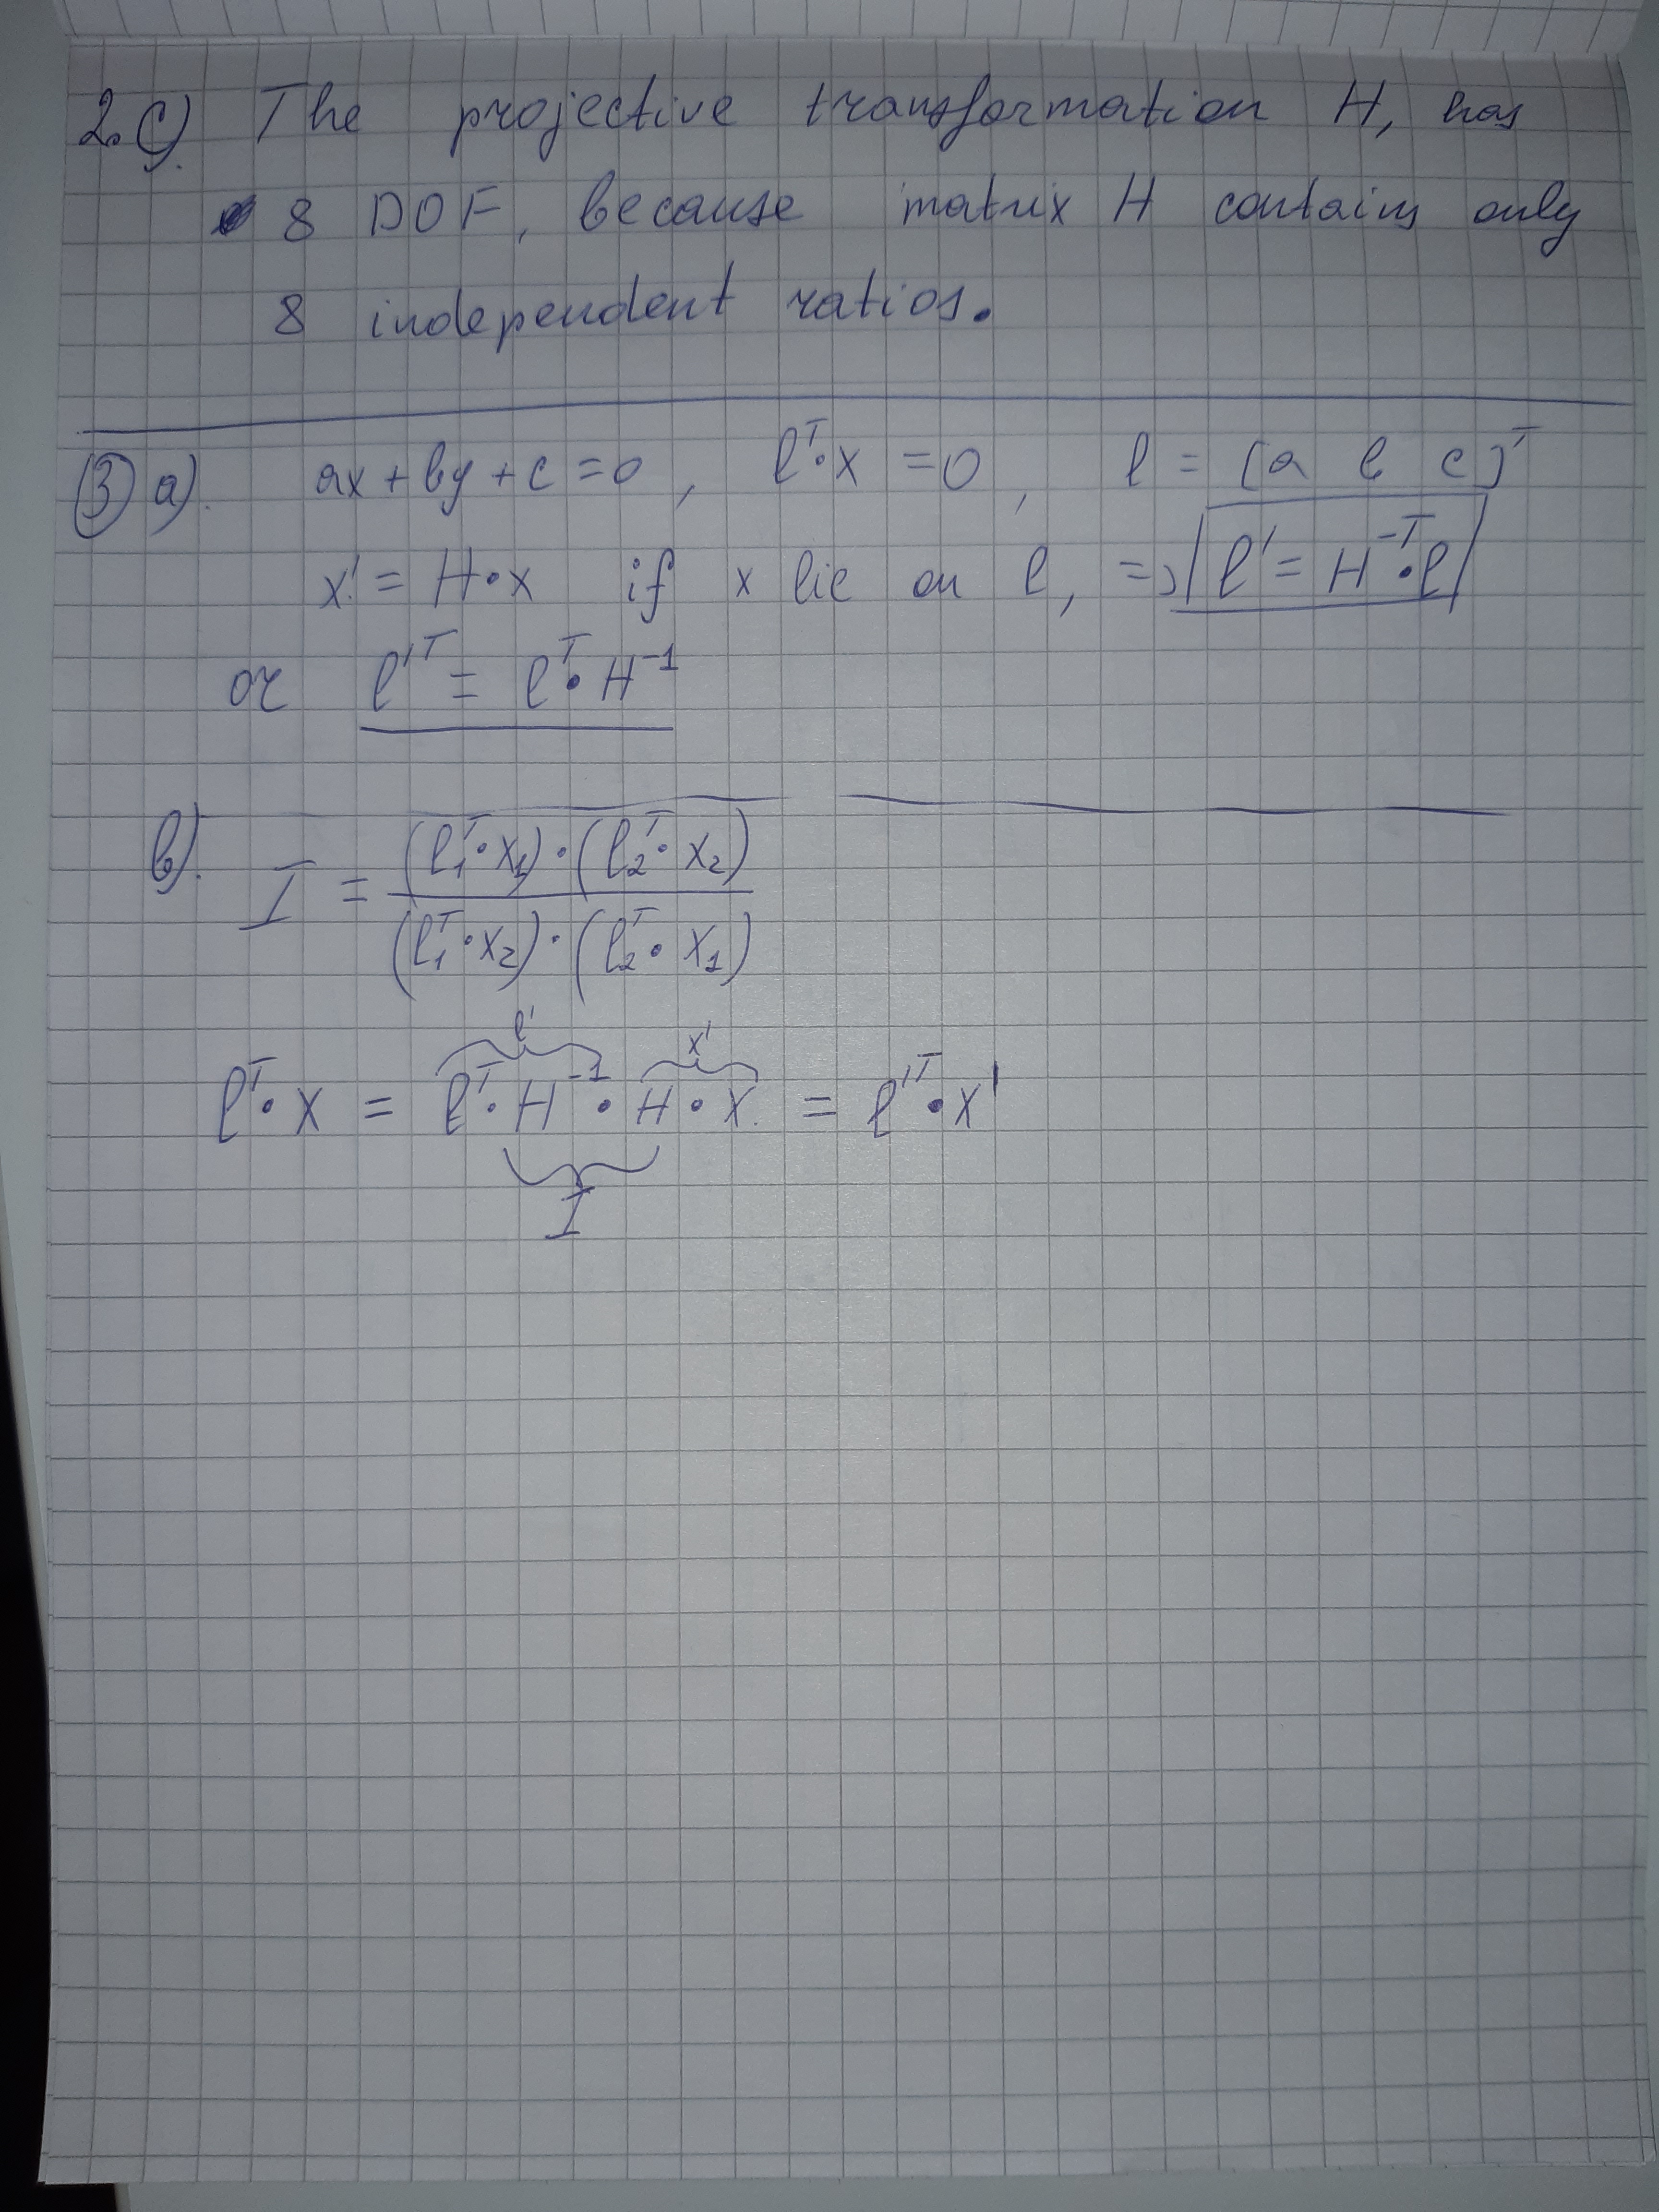 2.c). The projective transformation H, has
8 DOF, because matrix H contains only
8 independent ratios.
③ a). ax + by + c = 0, lᵀ·x = 0, l = [a b c]ᵀ
x' = H·x if x lie on l, => |l' = H⁻ᵀ·l|
or l'ᵀ = lᵀ·H⁻¹
b). I = (l₁ᵀ·x₁)·(l₂ᵀ·x₂)
(l₁ᵀ·x₂)·(l₂ᵀ·x₁)
l' x'
lᵀ·x = lᵀ·H⁻¹·H·x. = l'ᵀ·x'
I